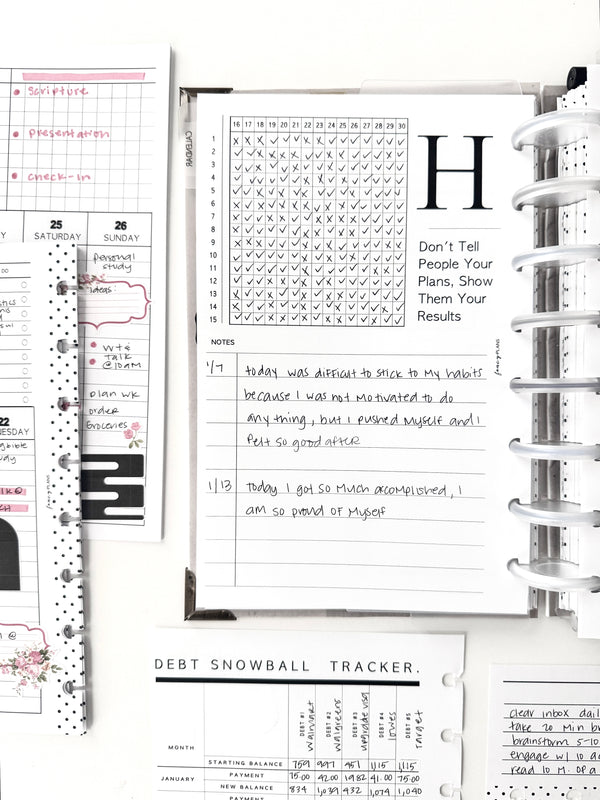 scripture
presentation
check-in
25
SATURDAY
26
SUNDAY
personal
study
ideas:
wte
talk
@10am
plan wk
order
groceries
22
16 17 18 19 20 21 22 23 24 25 26 27 28 29 30
1
2
3
4
5
6
7
8
9
10
11
12
13
14
15
H
Don't Tell
People Your
Plans, Show
Them Your
Results
NOTES
1/7 today was difficult to stick to my habits
because I was not motivated to do
anything, but I pushed myself and I
felt so good after
1/13 Today I got so much accomplished, I
am so proud of myself
DEBT SNOWBALL TRACKER.
MONTH
DEBT #1 walmart
DEBT #2 walgreens
DEBT #3 upgrade visa
DEBT #4 lowes
DEBT #5 Target
STARTING BALANCE 759 997 451 1,115 1,115
JANUARY PAYMENT 75.00 42.00 19.82 41.00 75.00
NEW BALANCE 834 1,039 432 1,074 1,040
PAYMENT
clear inbox dail
take 20 min br
brainstorm 5-10
engage w/ 10 a
read 10 m. of a